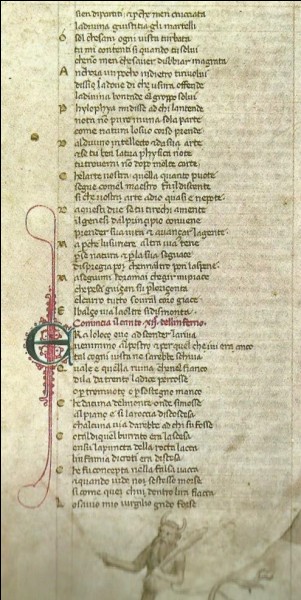 sien dipartiti & pche men crucciata
la diuina giustitia gli martelli
O sol che sani ogni uista turbata
tu mi contenti si quando tu solui
che nō men che sauer dubbiar magrata
Anchora un pocho indietro ti riuolui
dissio la doue di che usura offende
la diuina bontade el groppo solui
mi disse ad chi lantende
nota nō pur ī una sola parte
come natura lo suo corso prende
dal diuino intellecto & da sua arte
& se tu ben la tua physica note
tu trouerai nō dopo molte carte
Che larte uostra quella quanto puote
segue comel maestro fa il discente
si che uostra arte adio quasi e nepote
Da queste due se tu ti rechi amente
il genesi dal principio conuene
prender sua uita & auançar la gente
altra uia tene
p se natura & p la sua seguace
dispregia poi chen altro pon la spene
chel gir mi piace
che pesci guiçan su p lorizonta
el carro tutto soural coro giace
El balço uia la oltre si dismonta
Comincia il canto .xij. dellinferno.
Era lo loco oue ad scender la riua
uenimmo alpestro & p quel che iui era anco
tal cogni uista ne sarebbe schiua
Quale e quella ruina che nel fianco
di la da trento ladice percosse
o p tremuoto o p sostegno manco
Che da cima del monte onde si mosse
al piano e si la roccia discoscesa
chalcuna uia darebbe ad chi su fosse
Cotal di quel burrato era la scesa
ensu la puncta della rocta lacca
linfamia di creti era distesa
Che fu concepta nella falsa uacca
& quando uide noi se stesso morse
si come quei chui dentro lira fiacca
Lo sauio mio uirgilio grido forse